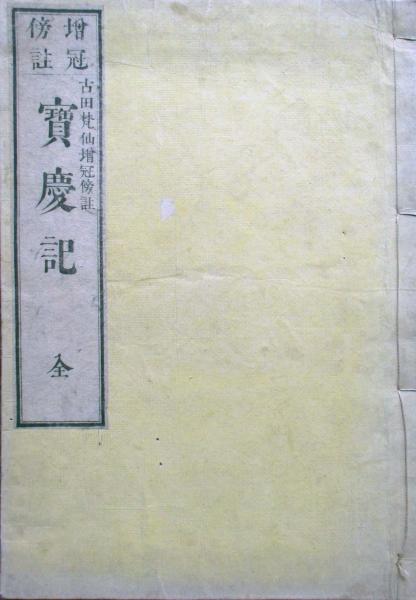 增冠
傍註
古田梵仙增冠傍註
寶慶記
全